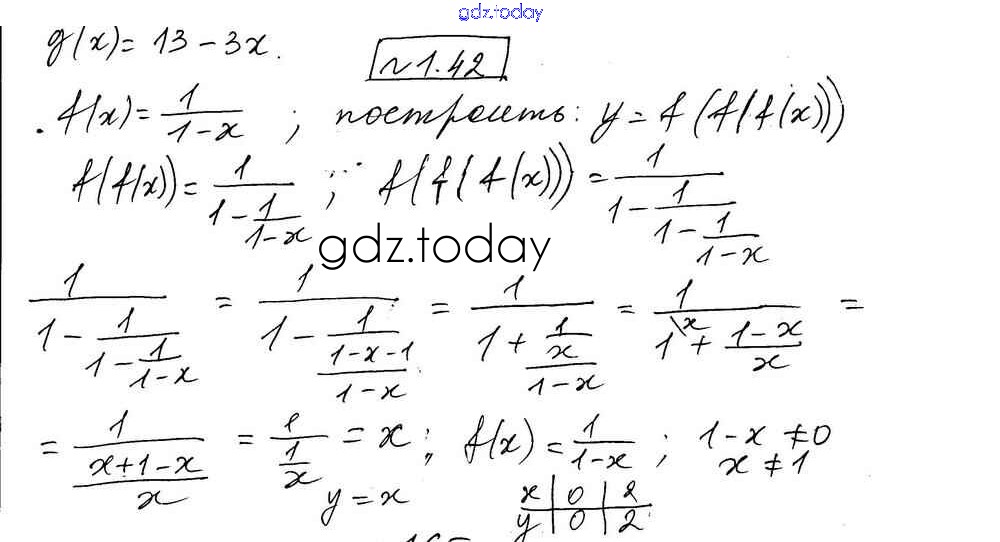 gdz.today
g(x) = 13 - 3x.
~1.42
. f(x) = 1/(1-x) ; построить: y = f(f(f(x)))
f(f(x)) = 1/(1 - 1/(1-x)) ; f(f(f(x))) = 1/(1 - 1/(1 - 1/(1-x)))
gdz.today
1/(1 - 1/(1 - 1/(1-x))) = 1/(1 - 1/((1-x-1)/(1-x))) = 1/(1 + (1/x)/(1-x)) = 1/(1\x + (1-x)/x) =
= 1/((x+1-x)/x) = 1/(1/x) = x ; f(x) = 1/(1-x) ; 1-x ≠ 0
x ≠ 1
y = x
x | 0 | 2
y | 0 | 2